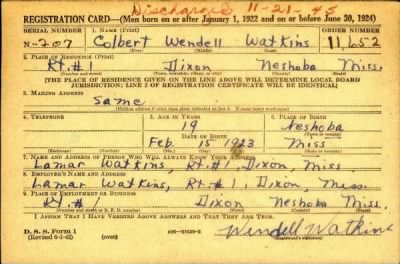 Discharged 11-21-45
REGISTRATION CARD—(Men born on or after January 1, 1922 and on or before June 30, 1924)
SERIAL NUMBER 1. NAME (Print) ORDER NUMBER
N-207 Colbert Wendell Watkins 11,652
(First) (Middle) (Last)
2. PLACE OF RESIDENCE (Print)
Rt. #1 Dixon Neshoba Miss.
(Number and street) (Town, township, village, or city) (County) (State)
(THE PLACE OF RESIDENCE GIVEN ON THE LINE ABOVE WILL DETERMINE LOCAL BOARD
JURISDICTION; LINE 2 OF REGISTRATION CERTIFICATE WILL BE IDENTICAL)
3. MAILING ADDRESS
Same
4. TELEPHONE 5. AGE IN YEARS 6. PLACE OF BIRTH
19 Neshoba
DATE OF BIRTH (Town or county)
Feb. 15 1923 Miss
7. NAME AND ADDRESS OF PERSON WHO WILL ALWAYS KNOW YOUR ADDRESS
Lamar Watkins, Rt. #1, Dixon, Miss
8. EMPLOYER'S NAME AND ADDRESS
Lamar Watkins, Rt. #1, Dixon, Miss.
9. PLACE OF EMPLOYMENT OR BUSINESS
Rt. #1 Dixon Neshoba Miss.
(Number and street or R. F. D. number) (Town) (County) (State)
I AFFIRM THAT I HAVE VERIFIED ABOVE ANSWERS AND THAT THEY ARE TRUE.
D. S. S. Form 1
(Revised 6-1-42) (over)
Wendell Watkins